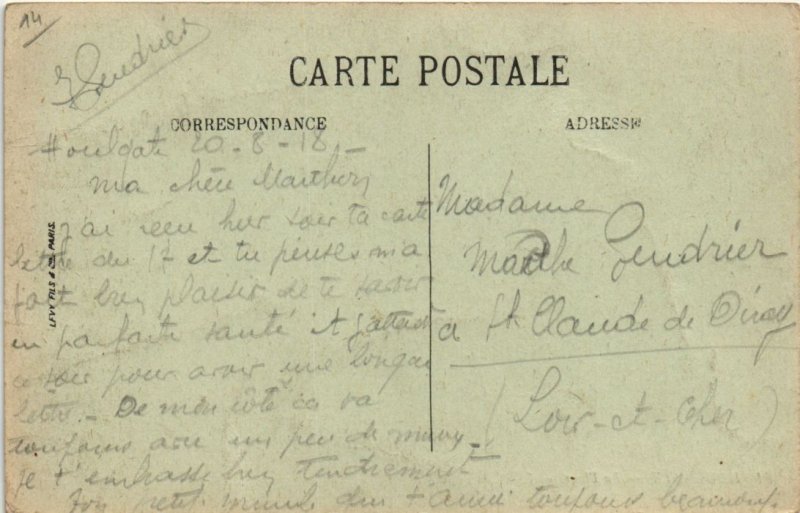 14
Gendrier
CARTE POSTALE
CORRESPONDANCE
ADRESSE
Houlgate 20-8-18.-
Ma chère Marthon
j'ai reçu hier soir ta carte
lettre du 17 et tu penses m'a
fait bien plaisir de te savoir
en parfaite santé et j'attends
ce soir pour avoir une longue
lettre - De mon côté ça va
toujours avec un peu de mieux -
je t'embrasse bien tendrement
Ton petit qui t'aime toujours beaucoup
Madame
Marthe Gendrier
à St Claude de Diray
(Loir-et-Cher)
LEVY FILS & Cie. PARIS.